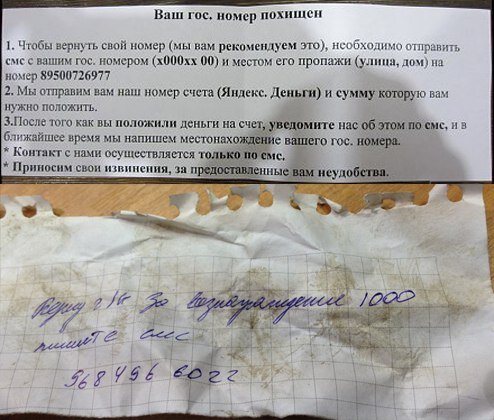 Ваш гос. номер похищен
1. Чтобы вернуть свой номер (мы вам рекомендуем это), необходимо отправить
смс с вашим гос. номером (х000хх 00) и местом его пропажи (улица, дом) на
номер 89500726977
2. Мы отправим вам наш номер счета (Яндекс. Деньги) и сумму которую вам
нужно положить.
3.После того как вы положили деньги на счет, уведомите нас об этом по смс, и в
ближайшее время мы напишем местонахождение вашего гос. номера.
* Контакт с нами осуществляется только по смс.
* Приносим свои извинения, за предоставленные вам неудобства.
за вознаграждение 1000
пишите смс
968 496 6022